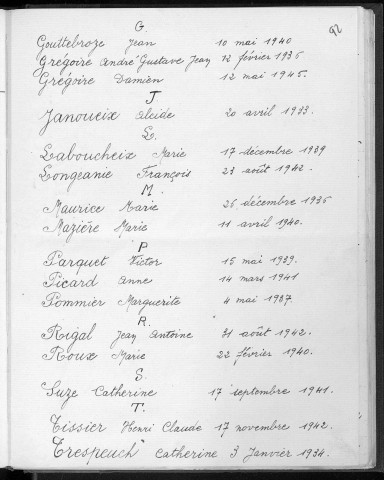 92
G.
Gouttebroze Jean 10 mai 1940
Grégoire André Gustave Jean 12 février 1936
Grégoire Damien 12 mai 1945.
J
Janoueix Alcide 20 avril 1933.
L.
Laboucheix Marie 17 décembre 1939
Longeanie François 23 août 1942.
M.
Maurice Marie 26 décembre 1936
Mazière Marie 11 avril 1940.
P
Parquet Victor 15 mai 1939.
Picard Anne 14 mars 1941
Pommier Marguerite 4 mai 1937.
R.
Rigal Jean Antoine 31 août 1942.
Roux Marie 22 février 1940.
S.
Suze Catherine 17 septembre 1941.
T.
Tissier Henri Claude 17 novembre 1942.
Trespeuch Catherine 3 Janvier 1934.